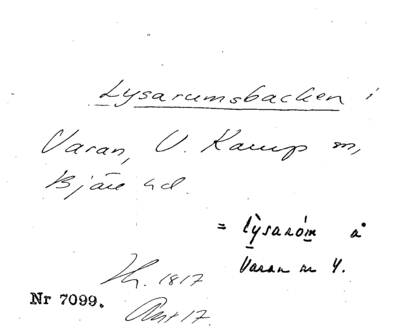 Lysarumsbacken i
Varan, V. Karup sn,
Bjäre hd.
= lỳsaróm å
Varan nr 4.
1817
Nr 7099. Akt 17.